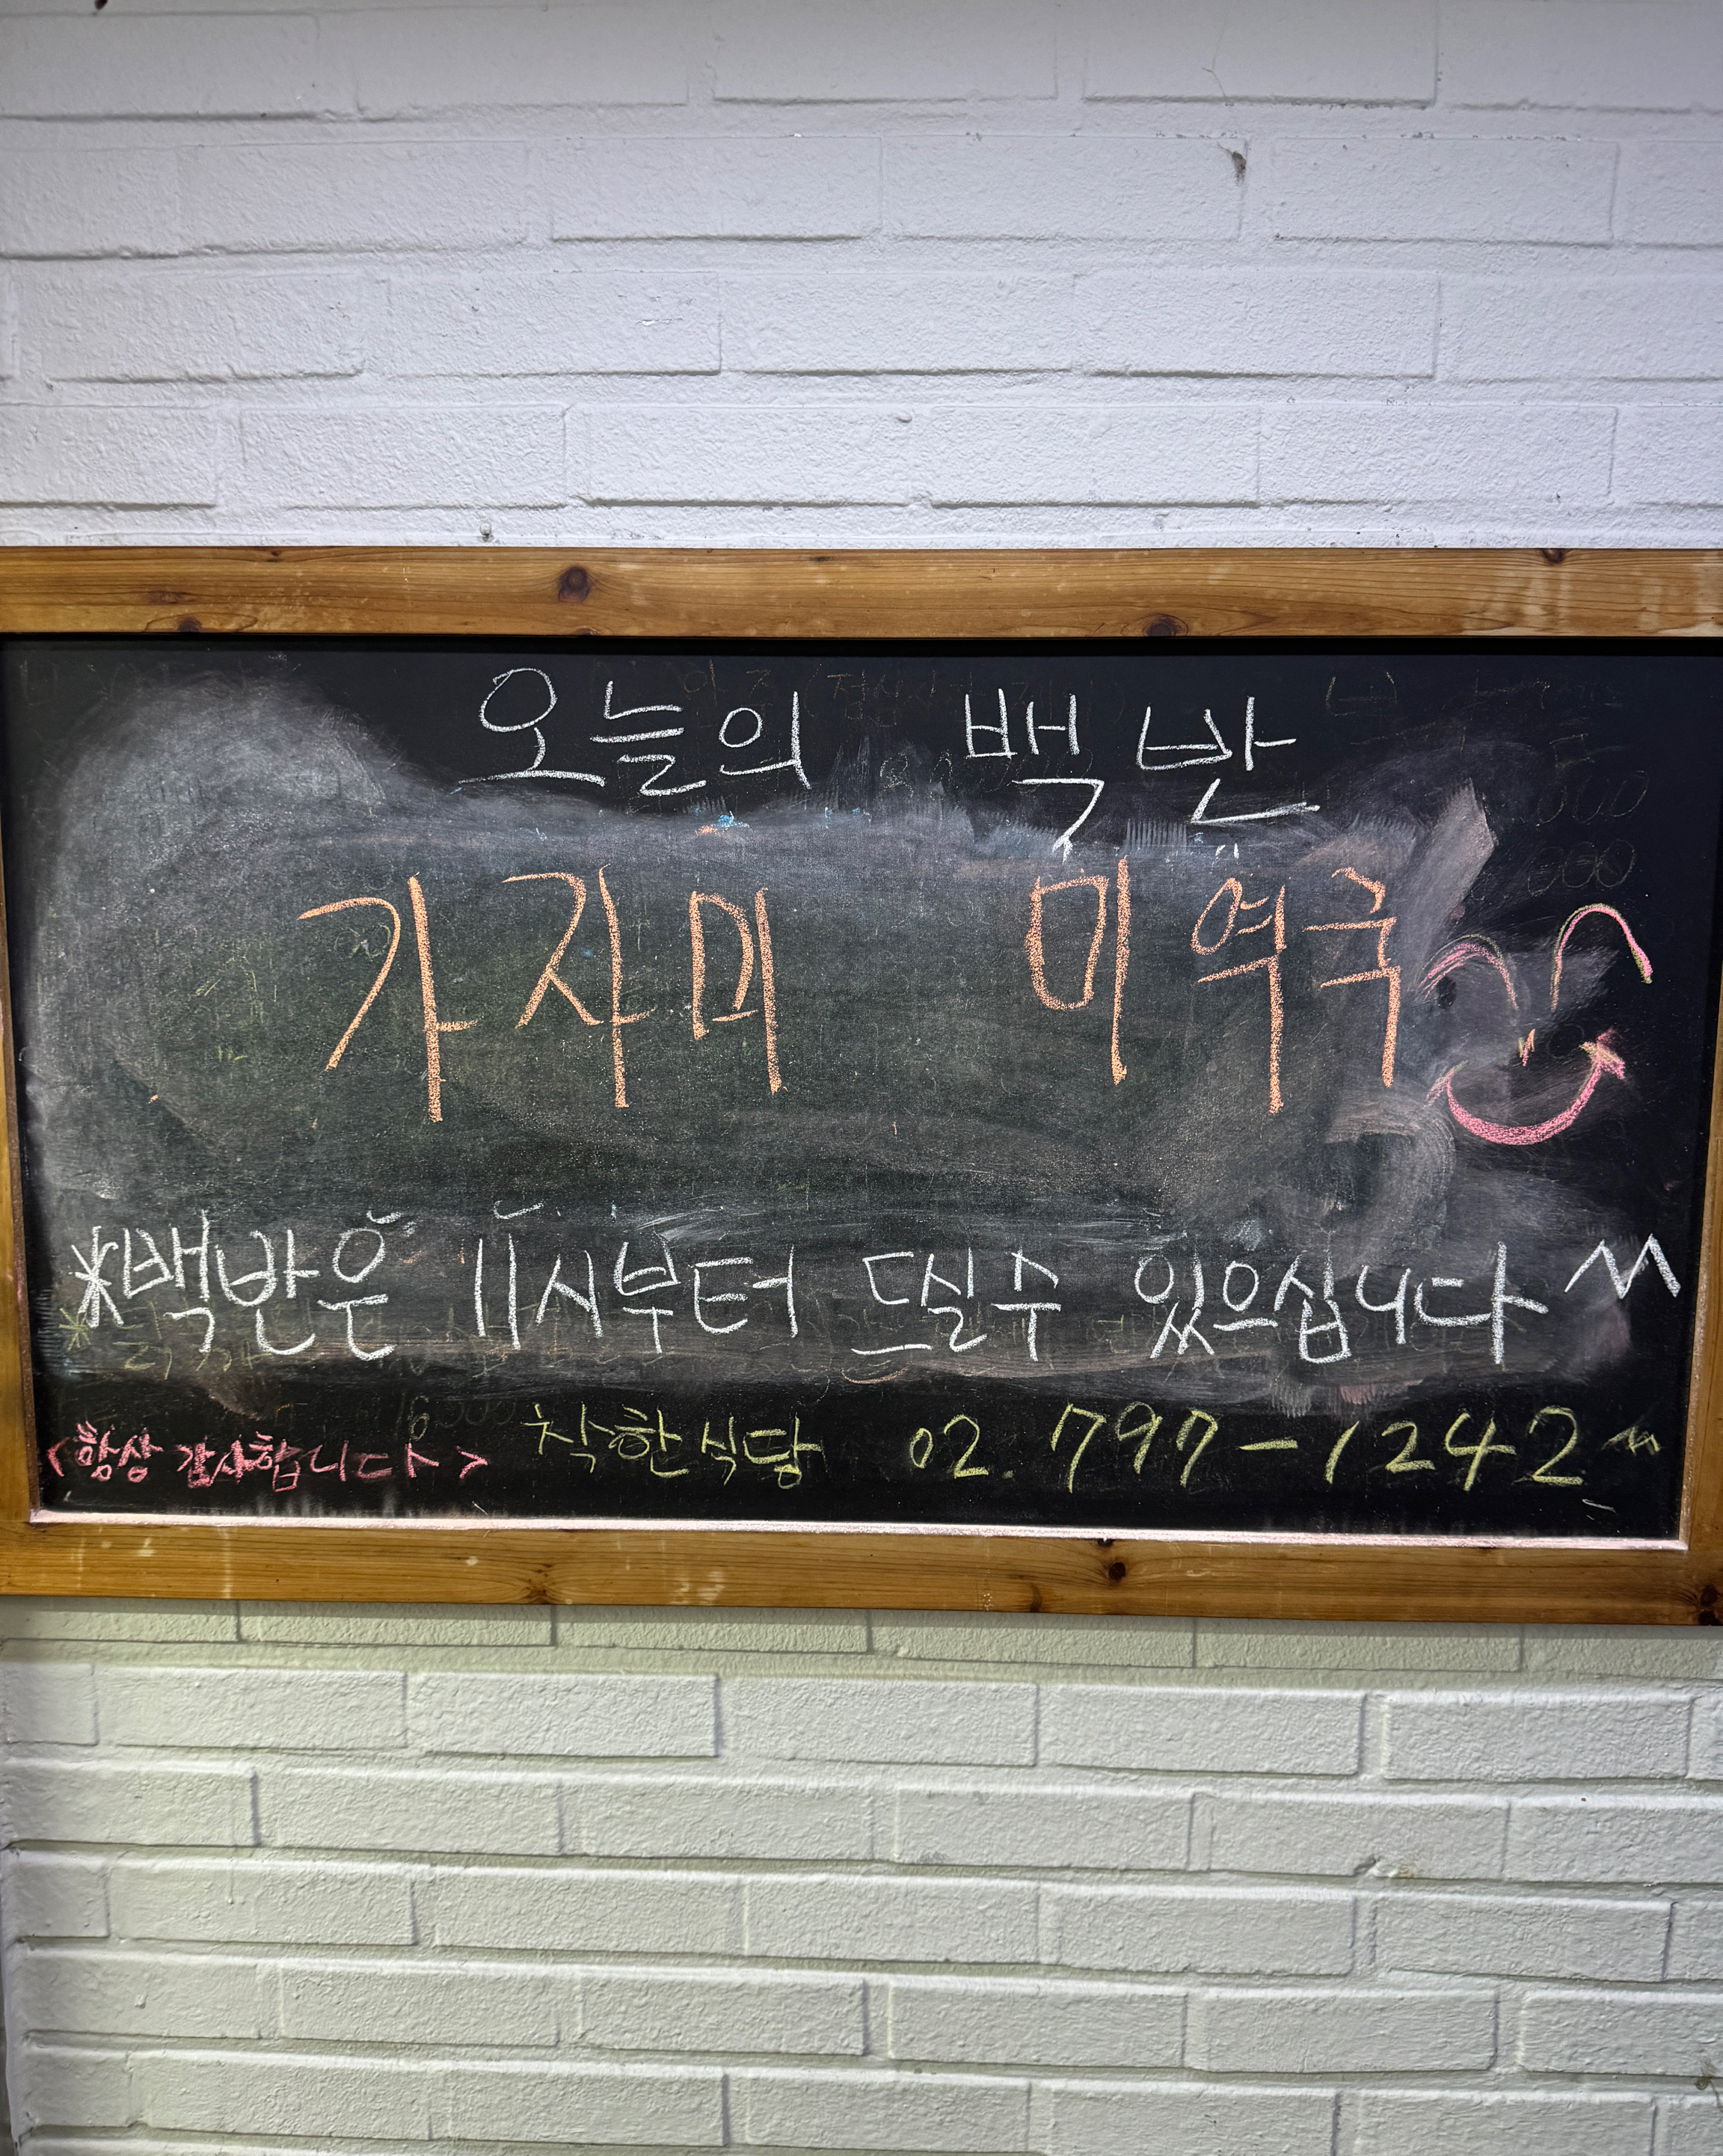 오늘의 백반
가자미 미역국
*백반은 11시부터 드실수 있으십니다
<항상 감사합니다> 착한식당 02. 797-1242